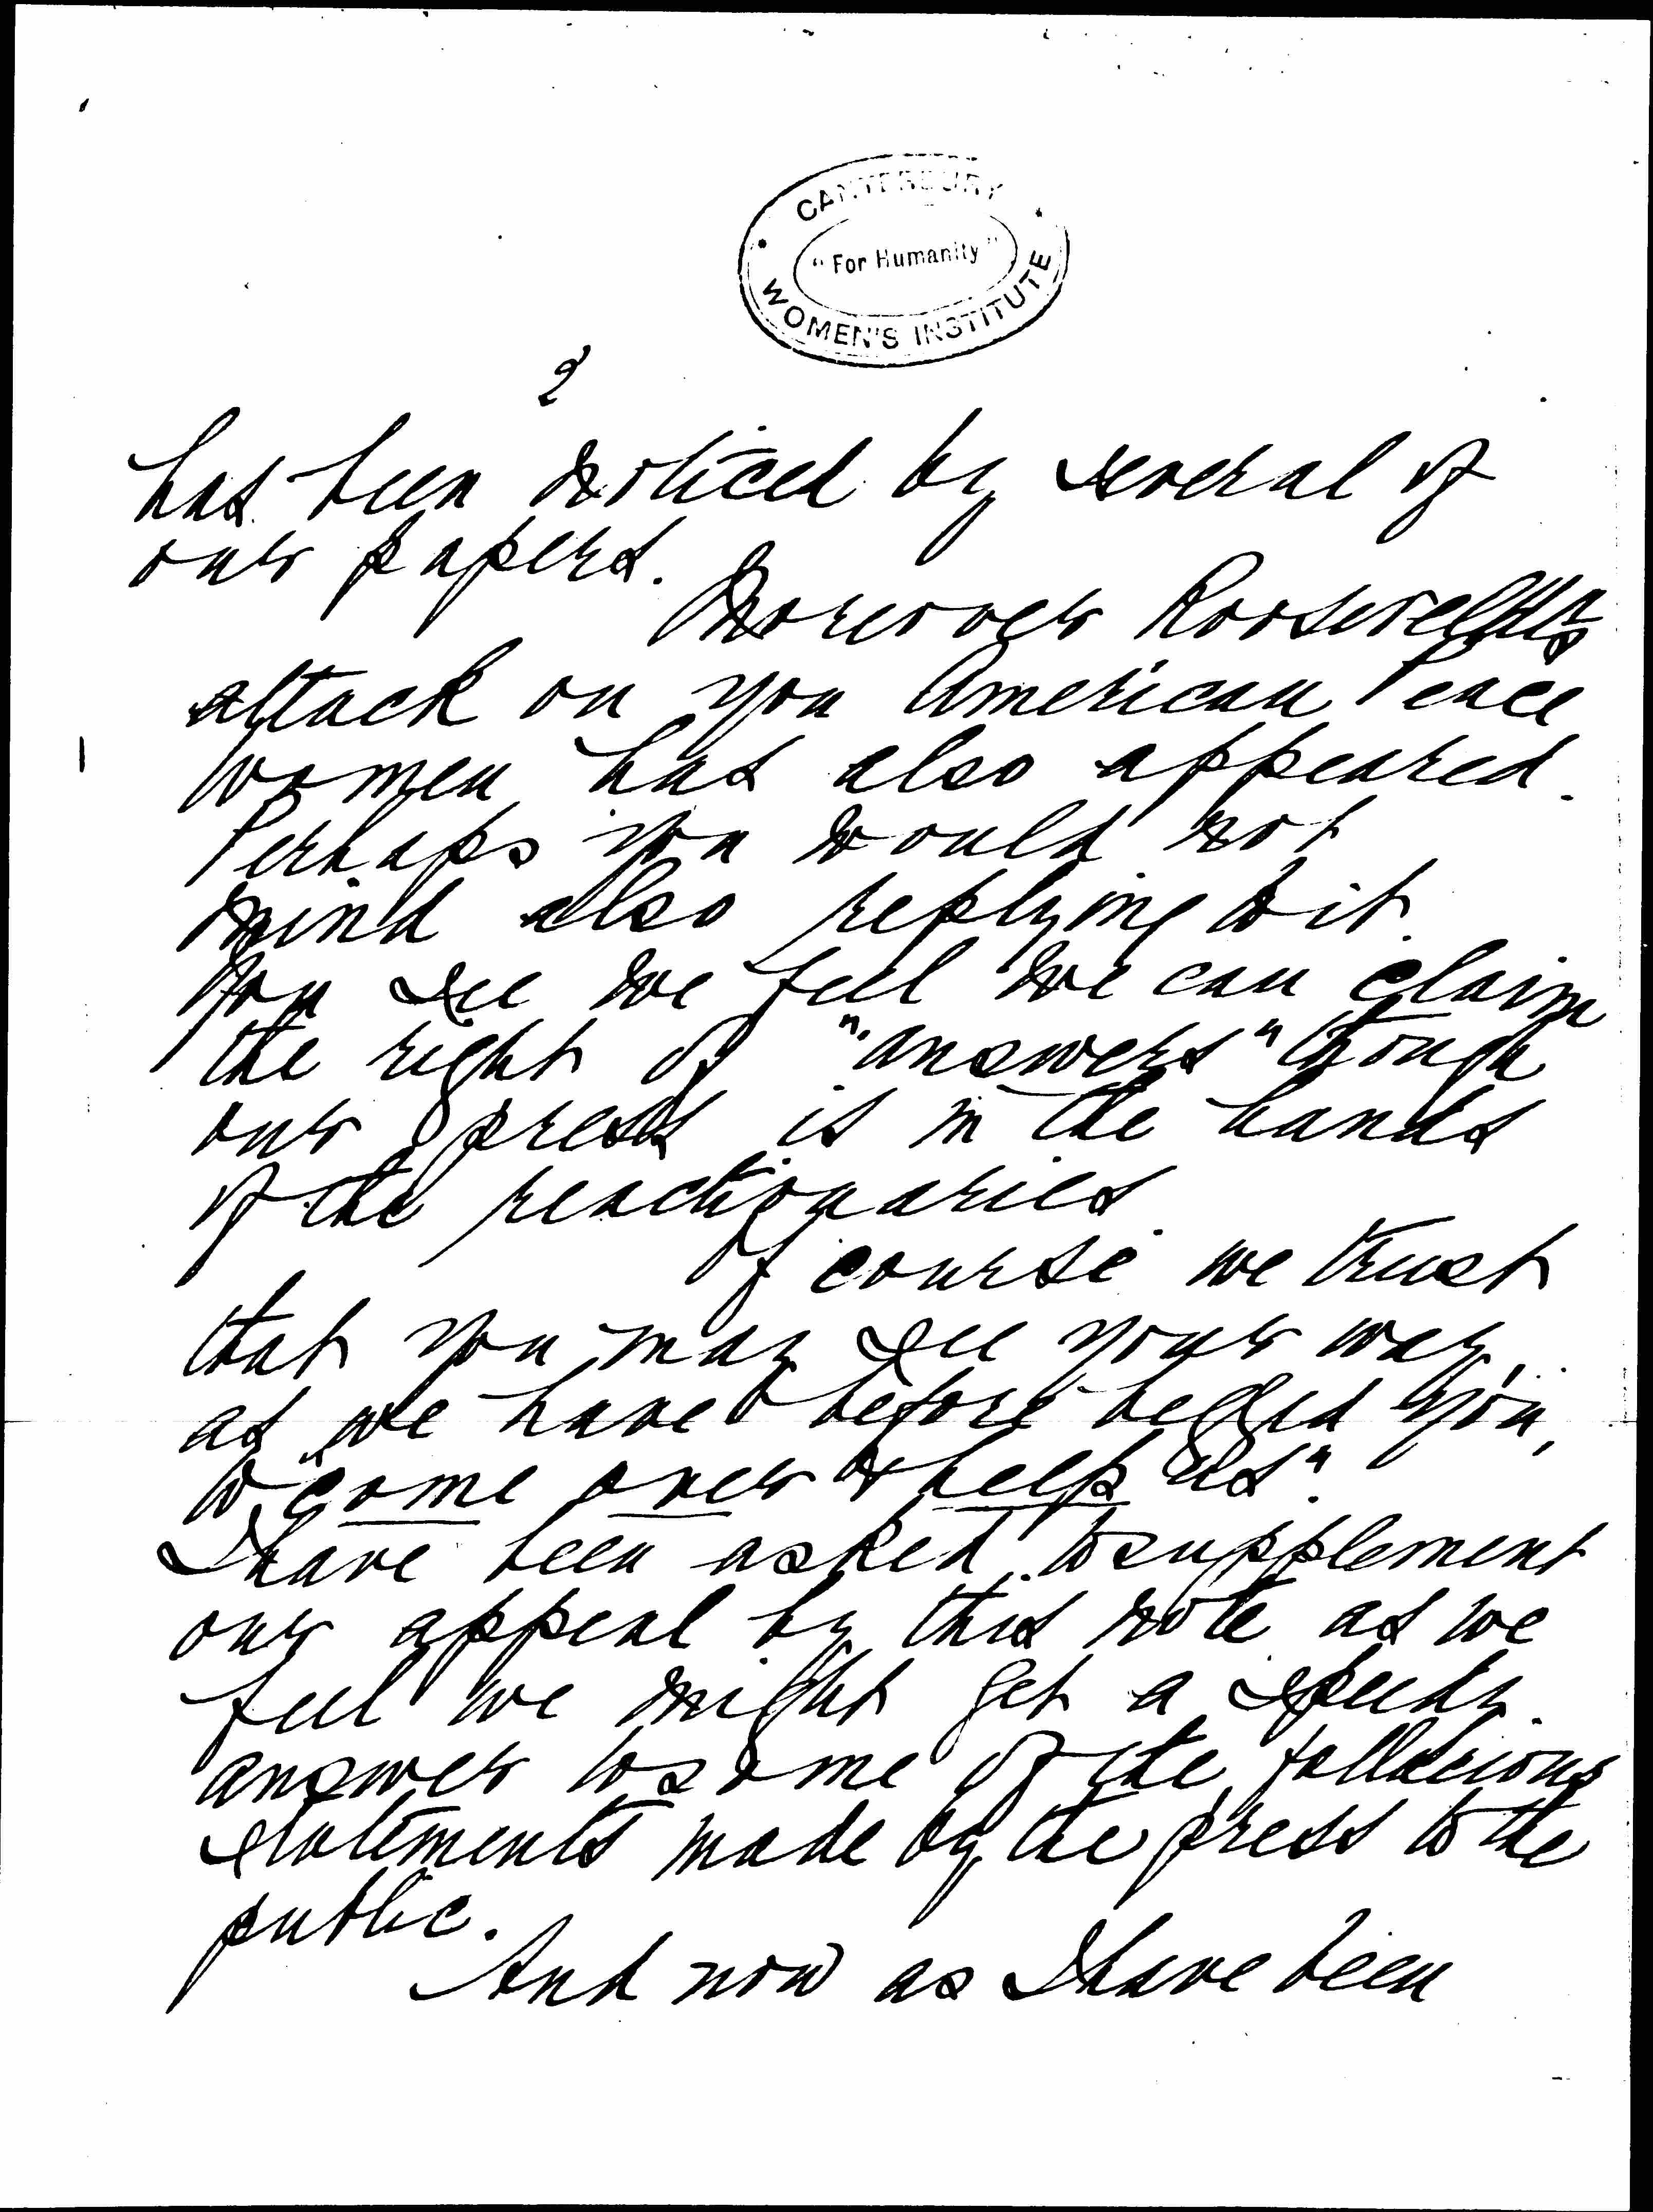 CANTERBURY
"For Humanity"
WOMEN'S INSTITUTE
2
has been noticed by several of
our papers.
Moreover Roosevelt's
attack on you American Peace
women has also appeared.
Perhaps you would not
mind also replying to it.
You see we feel we can claim
the right of "answers" though
our press is in the hands
of the reactionaries.
Of course we trust
that you may see your way,
as we have before begged you,
to "come over & help us".
I have been asked to supplement
our appeal by this note as we
feel we might get a speedy
answer to some of the fallacious
statements made by the press to the
public.
And now as I have been